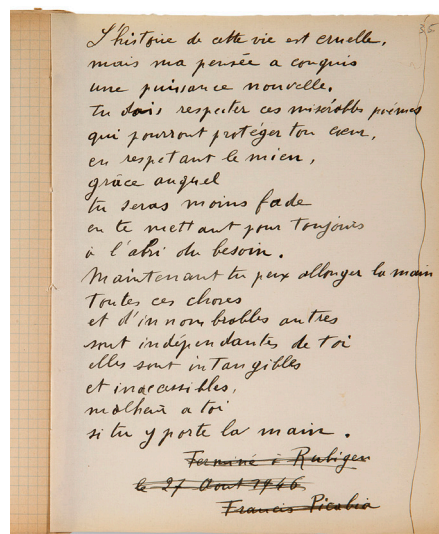 35
L'histoire de cette vie est cruelle,
mais ma pensée a conquis
une puissance nouvelle.
tu dois respecter ces misérables poèmes
qui pourront protéger ton cœur,
en respetant le mien,
grâce auquel
tu seras moins fade
en te mettant pour toujours
à l'abri du besoin.
Maintenant tu peux allonger la main
toutes ces choses
et d'innombrables autres
sont indépendantes de toi
elles sont intangibles
et inacessibles,
malheur a toi
si tu y porte la main.
Terminé à Rubigen
le 27 Aout 1946
Francis Picabia